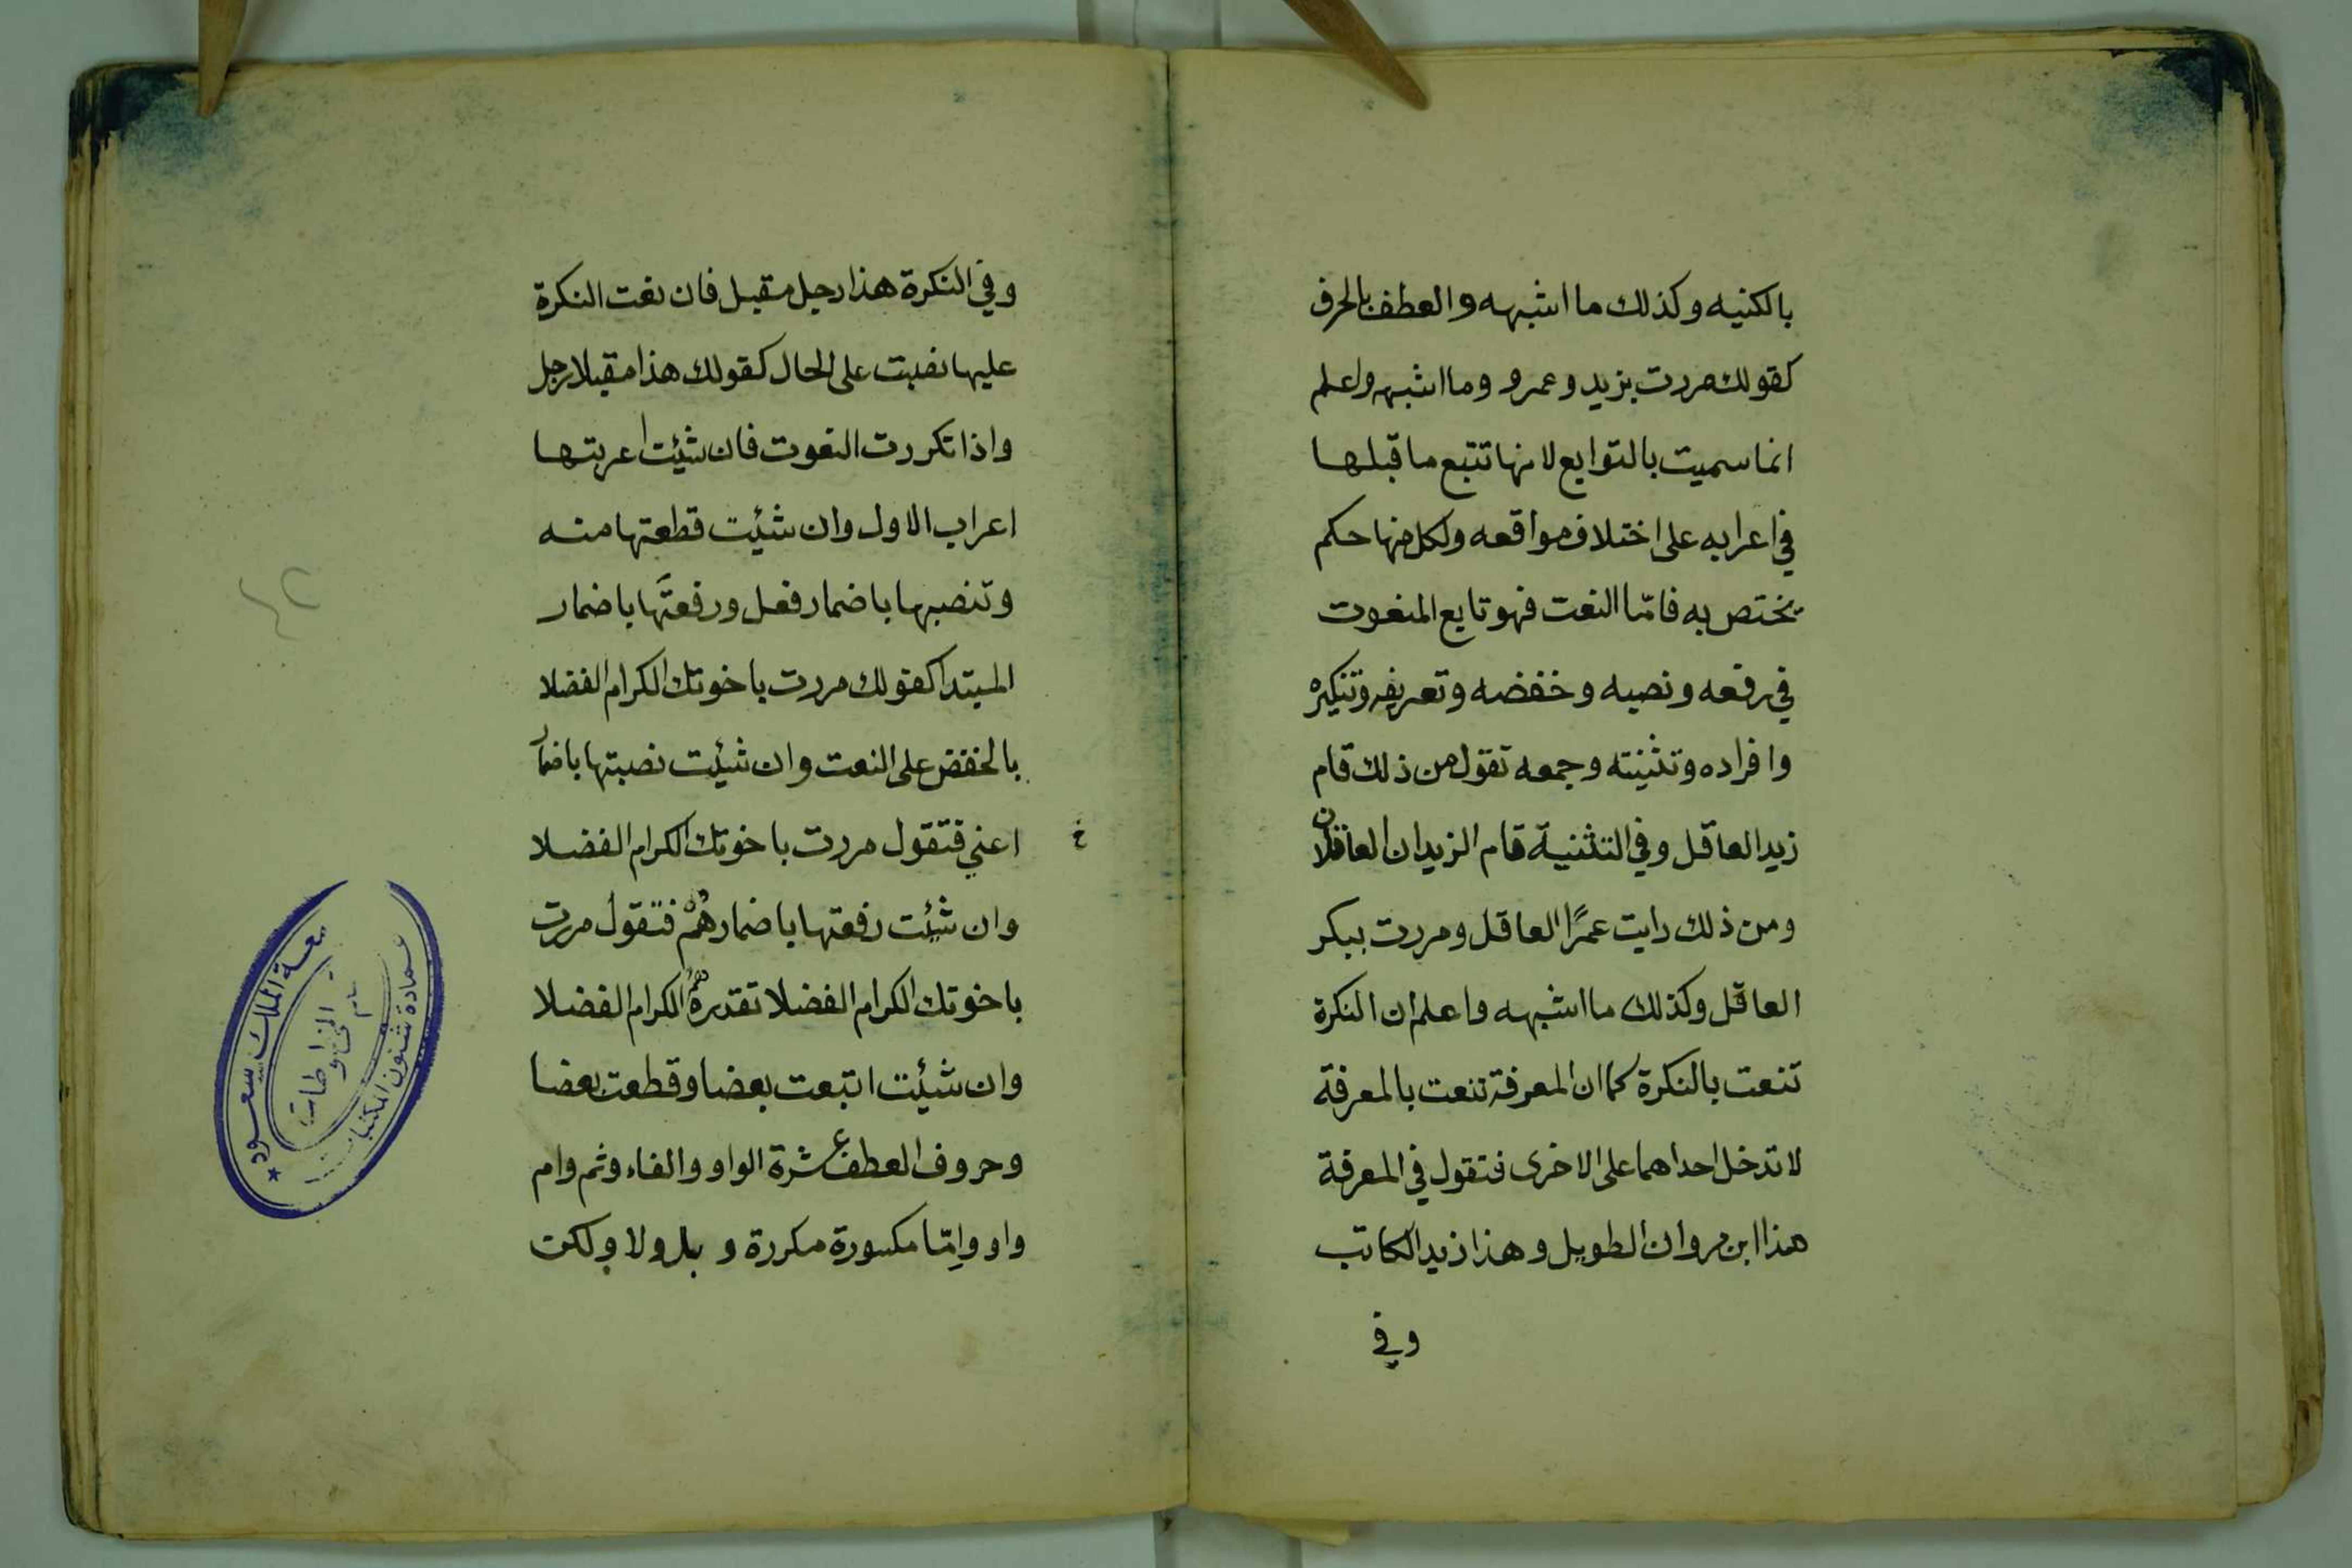 بالكنيه وكذلك ما اشبهه والعطف بالحرف
كقولك مررت بزيد وعمرو وما اشبهه واعلم
انما سميت بالتوابع لانها تتبع ما قبلها
في اعرابه على اختلاف مواقعه ولكل منها حكم
يختص به فامّا النعت فهو تابع المنعوت
في رفعه ونصبه وخفضه وتعريفه وتنكيره
وافراده وتثنيته وجمعه تقول من ذلك قام
زيد العاقل وفي التثنية قام الزيدان العاقلان
ومن ذلك رايت عمرًا العاقل ومررت ببكر
العاقل وكذلك ما اشبهه واعلم ان النكرة
تنعت بالنكرة كما ان المعرفة تنعت بالمعرفة
لا تدخل احداهما على الاخرى فتقول في المعرفة
هذا ابن مروان الطويل وهذا زيد الكاتب
وفي
وفي النكرة هذا رجل مقبل فان نعت النكرة
عليها نصبت على الحال كقولك هذا مقبلا رجل
واذا تكررت النعوت فان شئت اعربتها
اعراب الاول وان شئت قطعتها منه
وتنصبها باضمار فعل ورفعتَها باضمار
المبتدا كقولك مررت باخوتك الكرام الفضلا
بالخفض على النعت وان شئت نصبتها باضمار
اعني فتقول مررت باخوتك الكرام الفضلا
خ
وان شئت رفعتها باضمار هُمْ فتقول مررت
باخوتك الكرام الفضلا تقديره هم الكرام الفضلا
وان شئت اتبعت بعضا وقطعت بعضا
وحروف العطف عشرة الواو والفاء وثم وام
واو واِمّا مكسورة مكررة و بل ولا ولكن
جامعة الملك سعود
عمادة شئون المكتبات
قسم المخطوطات